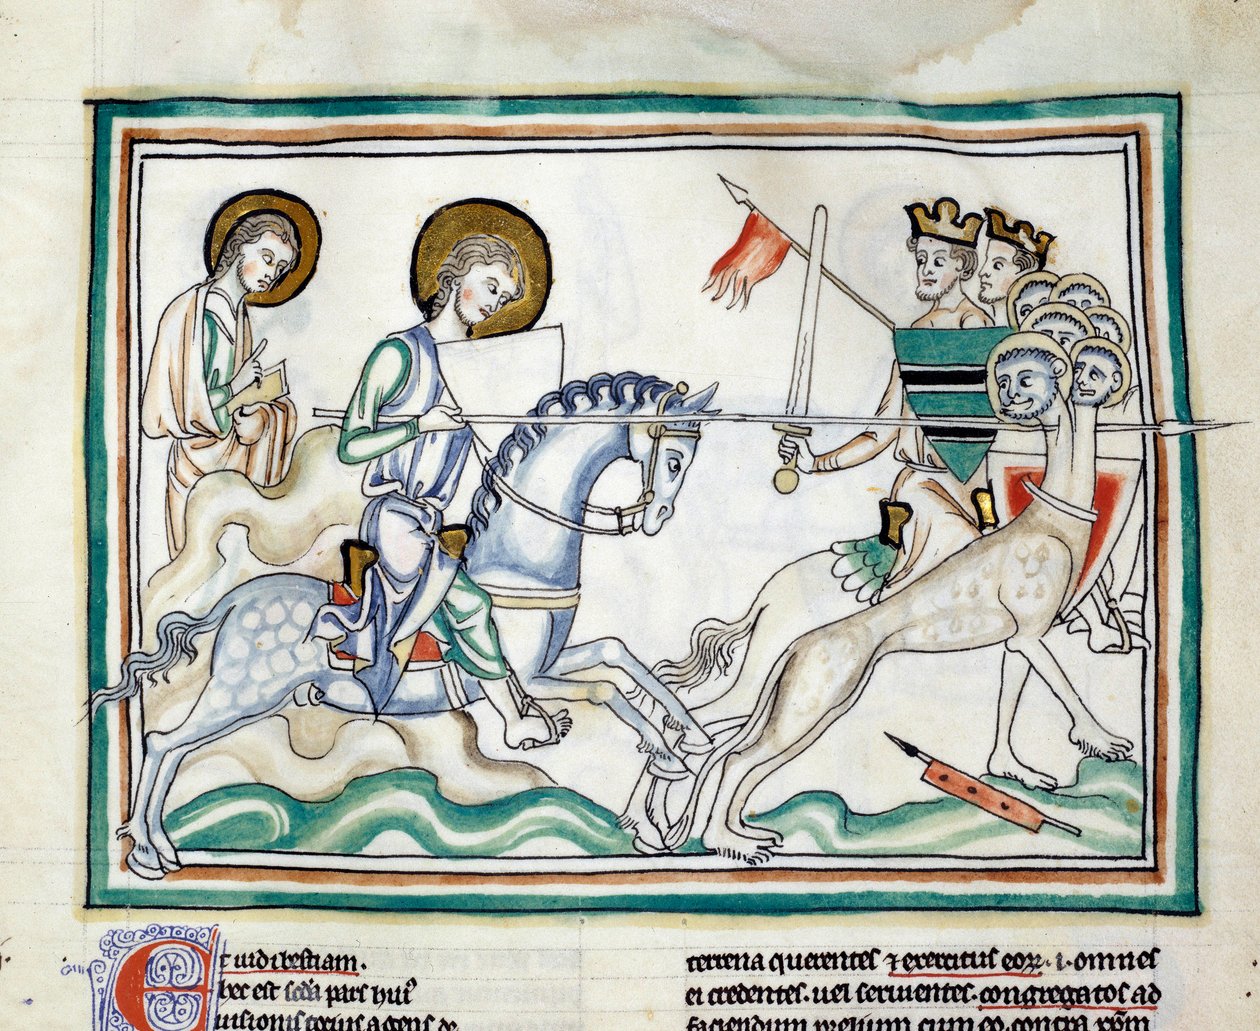 Et uidi bestiam.
hec est scda pars hui9
uisionis tocius agens de
terrena querentes ⁊ exercitus eoꝝ. i. omnes
ei credentes. uel seruientes. congregatos ad
faciendum prelium cum eo. contra xp̄m